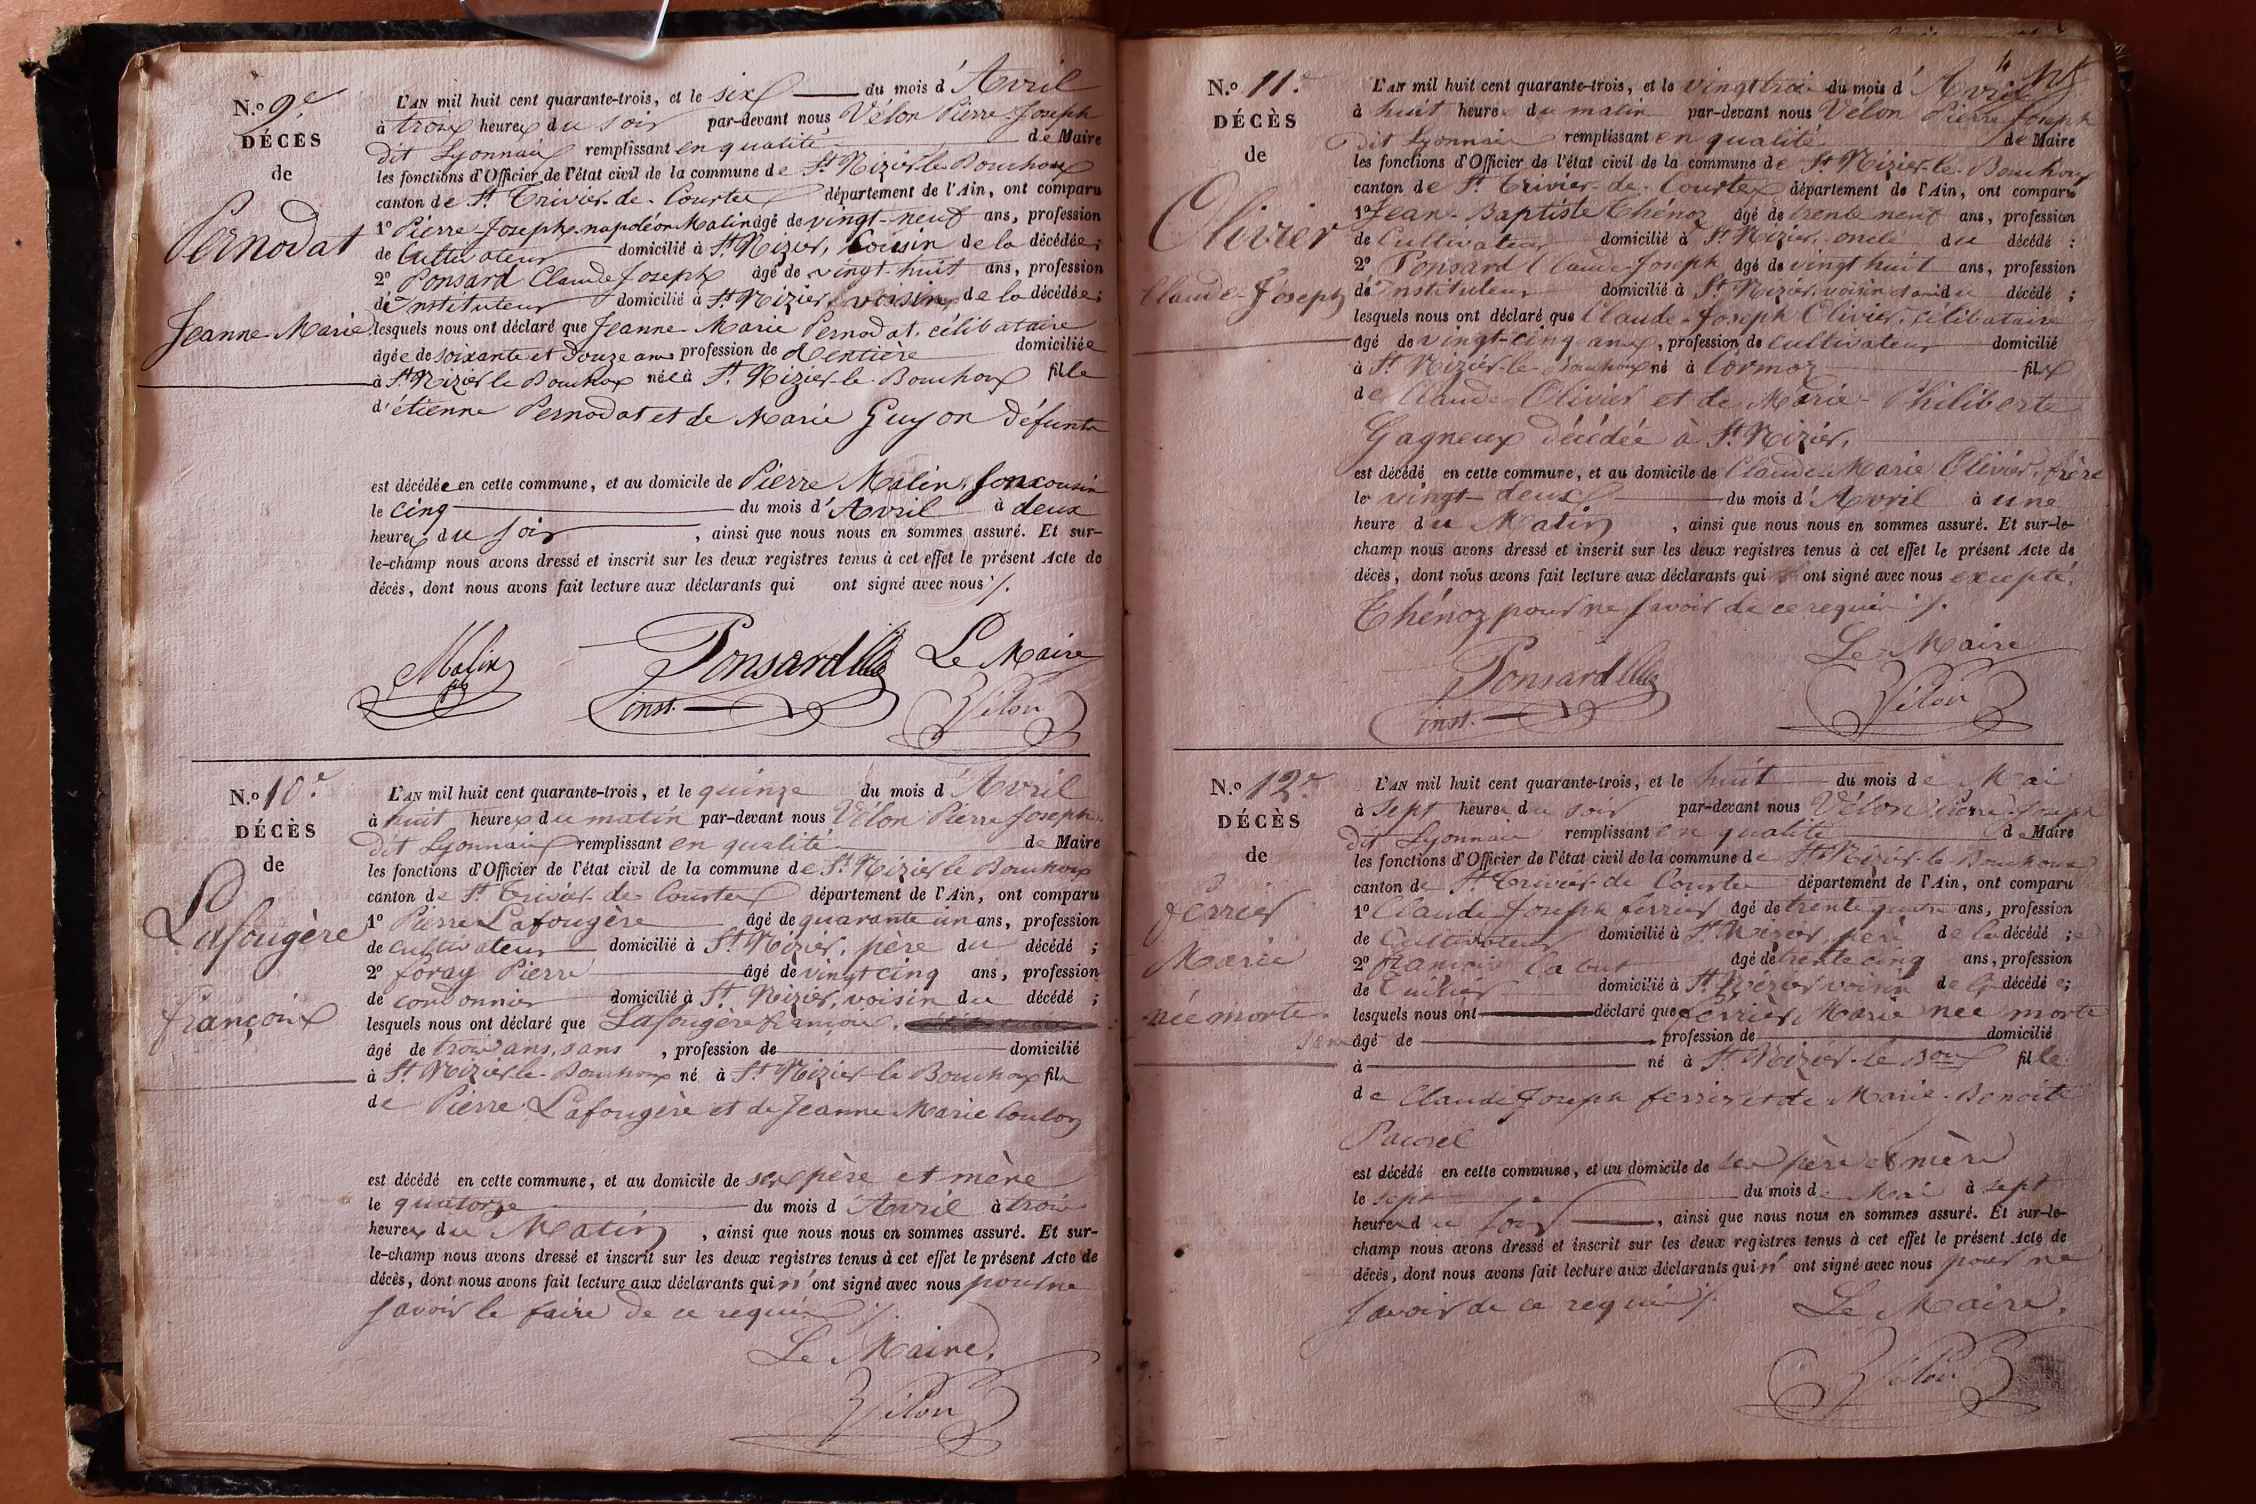 N.º 9.e
DÉCÈS
de
Pernodat
Jeanne-Marie
L'AN mil huit cent quarante-trois, et le six du mois d'Avril
à trois heures du soir par-devant nous Vélon Pierre-Joseph
dit Lyonnais remplissant en qualité de Maire
les fonctions d'Officier de l'état civil de la commune de St Nizier-le-Bouchoux
canton de St Trivier-de-Courtes département de l'Ain, ont comparu
1º Pierre Joseph-napoléon Malin âgé de vingt-neuf ans, profession
de Cultivateur domicilié à St Nizier, voisin de la décédée;
2º Ponsard Claude Joseph âgé de vingt-huit ans, profession
de Instituteur domicilié à St Nizier, voisin de la décédée;
lesquels nous ont déclaré que Jeanne-Marie Pernodat, célibataire
âgée de soixante et Douze ans profession de Rentière domiciliée
à St Nizier le Bouchoux née à St Nizier-le-Bouchoux fille
d'étienne Pernodat et de Marie Guyon défunts
est décédée en cette commune, et au domicile de Pierre Malin, son cousin
le cinq du mois d'Avril à deux
heures du soir, ainsi que nous nous en sommes assuré. Et sur-
le-champ nous avons dressé et inscrit sur les deux registres tenus à cet effet le présent Acte de
décès, dont nous avons fait lecture aux déclarants qui ont signé avec nous ./.
Malin Ponsard Le Maire
inst. Vélon
N.º 10.e
DÉCÈS
de
Lafougère
françois
L'AN mil huit cent quarante-trois, et le quinze du mois d'Avril
à huit heures du matin par-devant nous Vélon Pierre Joseph
dit Lyonnais remplissant en qualité de Maire
les fonctions d'Officier de l'état civil de la commune de St Nizier le Bouchoux
canton de St Trivier-de-Courtes département de l'Ain, ont comparu
1º Pierre Lafougère âgé de quarante un ans, profession
de cultivateur domicilié à St Nizier, père du décédé;
2º foray Pierre âgé de vingt cinq ans, profession
de cordonnier domicilié à St Nizier, voisin du décédé;
lesquels nous ont déclaré que Lafougère françois,
âgé de trois ans, sans, profession de domicilié
à St Nizier-le-Bouchoux né à St Nizier-le Bouchoux fils
de Pierre Lafougère et de Jeanne Marie Coulon
est décédé en cette commune, et au domicile de ses père et mère
le quatorze du mois d'Avril à trois
heures du Matin, ainsi que nous nous en sommes assuré. Et sur-
le-champ nous avons dressé et inscrit sur les deux registres tenus à cet effet le présent Acte de
décès, dont nous avons fait lecture aux déclarants qui n'ont signé avec nous pour ne
savoir le faire de ce requis ./.
Le Maire,
Vélon
4
N.º 11.e
DÉCÈS
de
Olivier
Claude-Joseph
L'AN mil huit cent quarante-trois, et le vingt trois du mois d'Avril
à huit heures du matin par-devant nous Vélon Pierre Joseph
dit Lyonnais remplissant en qualité de Maire
les fonctions d'Officier de l'état civil de la commune de St Nizier-le-Bouchoux
canton de St Trivier-de-Courtes département de l'Ain, ont comparu
1º Jean-Baptiste Thénoz âgé de trente neuf ans, profession
de Cultivateur domicilié à St Nizier, oncle du décédé;
2º Ponsard Claude-Joseph âgé de vingt huit ans, profession
de Instituteur domicilié à St Nizier, voisin du décédé;
lesquels nous ont déclaré que Claude-Joseph Olivier, célibataire
âgé de vingt-cinq ans, profession de cultivateur domicilié
à St Nizier-le-Bouchoux né à Cormoz fils
de Claude Olivier et de Marie-Philiberte
Gagneux décédée à St Nizier,
est décédé en cette commune, et au domicile de Claude Marie Olivier, frère
le vingt-deux du mois d'Avril à une
heure du Matin, ainsi que nous nous en sommes assuré. Et sur-le-
champ nous avons dressé et inscrit sur les deux registres tenus à cet effet le présent Acte de
décès, dont nous avons fait lecture aux déclarants qui ont signé avec nous excepté
Thénoz pour ne savoir de ce requis ./.
Ponsard Le Maire
inst. Vélon
N.º 12.e
DÉCÈS
de
ferrier
Marie
née morte.
L'AN mil huit cent quarante-trois, et le huit du mois de Mai
à sept heures du soir par-devant nous Vélon Pierre Joseph
dit Lyonnais remplissant en qualité de Maire
les fonctions d'Officier de l'état civil de la commune de St Nizier-le-Bouchoux
canton de St Trivier-de Courtes département de l'Ain, ont comparu
1º Claude Joseph ferrier âgé de trente quatre ans, profession
de Cultivateur domicilié à St Nizier, père de la décédée;
2º françois âgé de trente cinq ans, profession
de Tuilier domicilié à St Nizier voisin de la décédée;
lesquels nous ont déclaré que ferrier Marie née morte
âgé de profession de domicilié
à né à St Nizier-le Boux fille
de Claude Joseph ferrier et de Marie-Benoite
Pacorel
est décédé en cette commune, et au domicile de ses père et mère
le sept du mois de Mai à sept
heures du soir, ainsi que nous nous en sommes assuré. Et sur-le-
champ nous avons dressé et inscrit sur les deux registres tenus à cet effet le présent Acte de
décès, dont nous avons fait lecture aux déclarants qui n'ont signé avec nous pour ne
savoir de ce requis ./. Le Maire,
Vélon